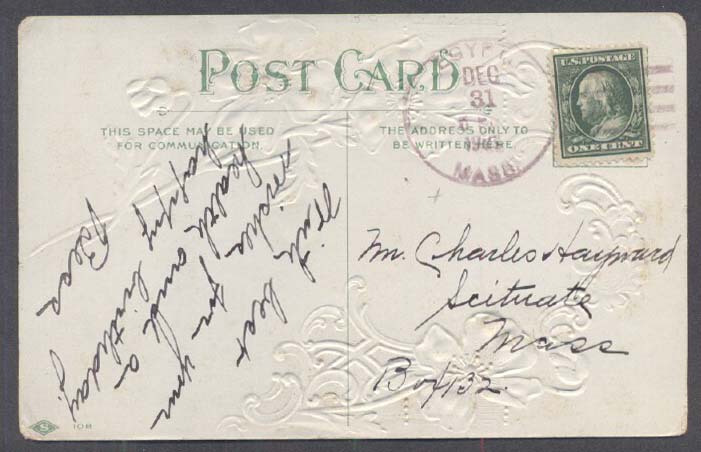 POST CARD
THIS SPACE MAY BE USED
FOR COMMUNICATION.
THE ADDRESS ONLY TO
BE WRITTEN HERE
EGYPT
DEC
31
MASS.
U.S. POSTAGE
ONE CENT
With best
wishes for your
health and a
happy birthday
Mr. Charles Hayward
Scituate
Mass
Box 132.
S
108